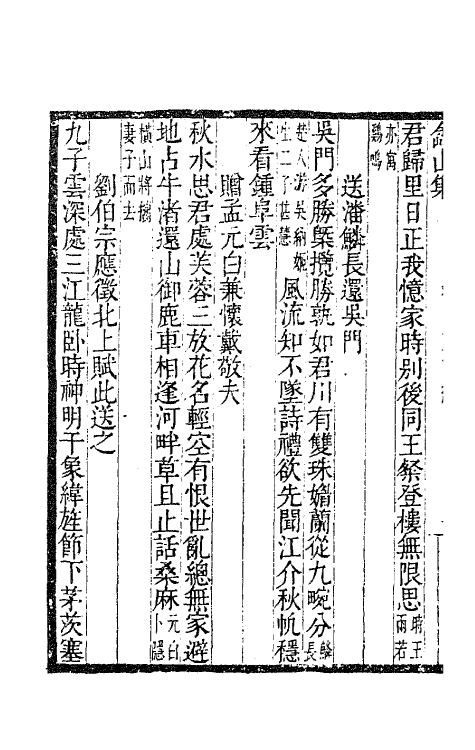 山集
君歸里日正我憶家時別後同王粲登樓無限思時王雨若
亦寓鷄鳴
送潘鱗長還吳門
吳門多勝槩攬勝孰如君川有雙珠媚蘭從九畹分鱗長
楚人游吳納姬生二子甚慧風流知不墜詩禮欲先聞江介秋帆穩
來看鍾阜雲
贈孟元白兼懷戴敬夫
秋水思君處芙蓉三放花名輕空有恨世亂總無家避
地占牛渚還山御鹿車相逢河畔草且止話桑麻元白卜隱
橫山將擕妻子而去
劉伯宗應徵北上賦此送之
九子雲深處三江龍卧時神明干象緯旌節下茅茨塞